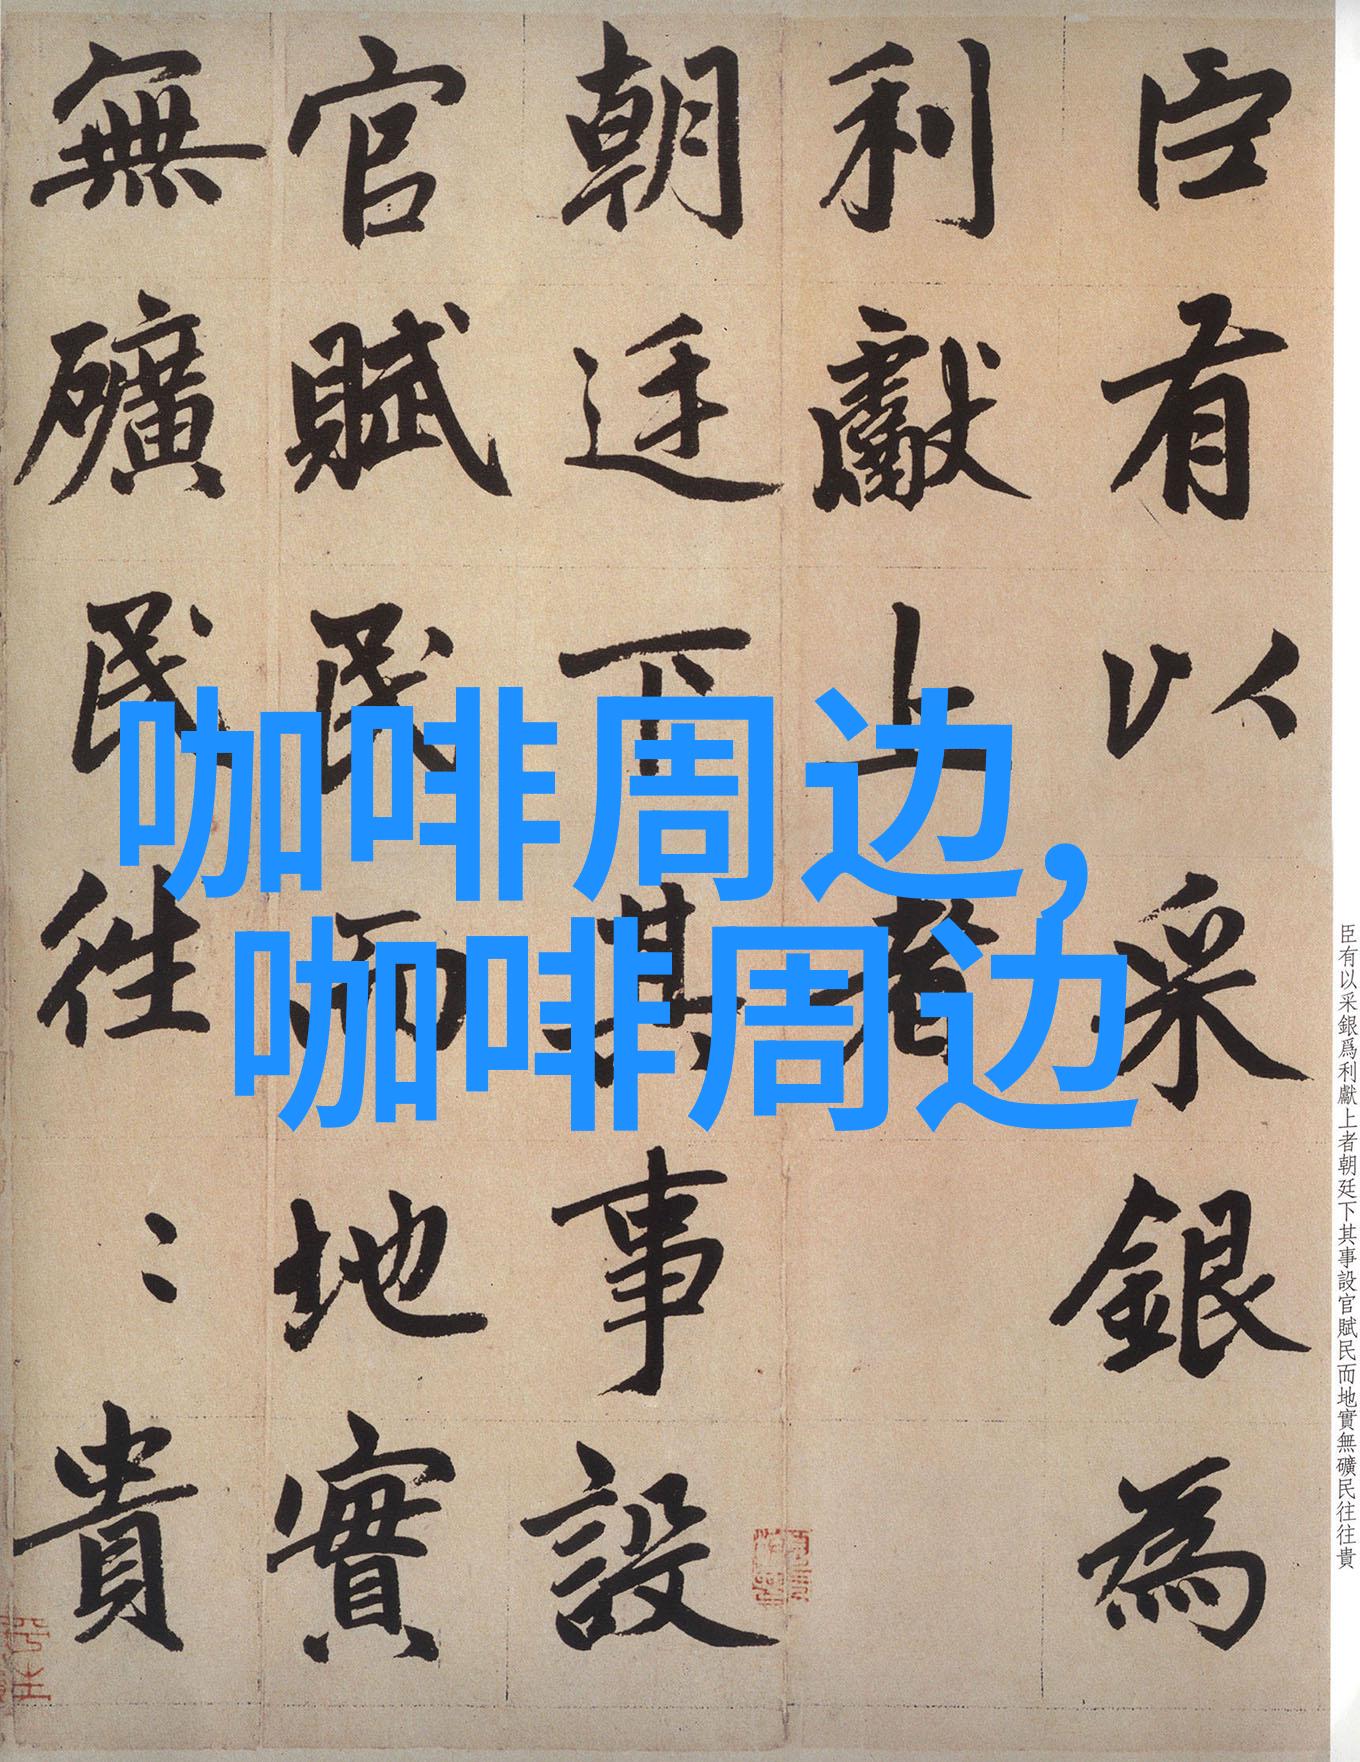 臣有以采銀為
利獻上者
朝廷下其事設
官賦民而地實
無礦民往〻貴
咖啡周边,
咖啡周边
臣有以采銀爲利獻上者朝廷下其事設官賦民而地實無礦民往往貴